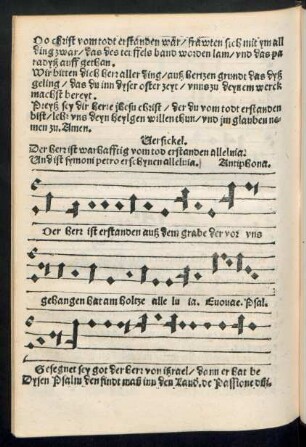 Do christ vom todt erstanden wär/ fräwten sich mit ym all
ding zwar/ das des teüffels band worden lam/ vnd das pa
radyß auff gethan.
Wir bitten dich herr aller ding/ auß hertzen grundt das dyß
geling/ das du inn dyser oster zeyt/ vnns zu deynem werck
machst bereyt.
Preyß sey dir herre jhesu christ/ der du vom todt erstanden
bist/ lehr vns deyn heylgen willen thun/ vnd jm glauben ne-
men zu. Amen.
Versickel.
Der herr ist warhafftig vom tod erstanden alleluia.
Und ist symoni petro erschynen alleluia. Antiphona.
Der herr ist erstanden auß dem grabe der vor vns
gehangen hat am holtze alle lu ia. Euouae. Psal.
Gesegnet sey got der herr von ißrael/ dann er hat be
Dysen Psalm den findt man inn den Laud. de Passione dñi.